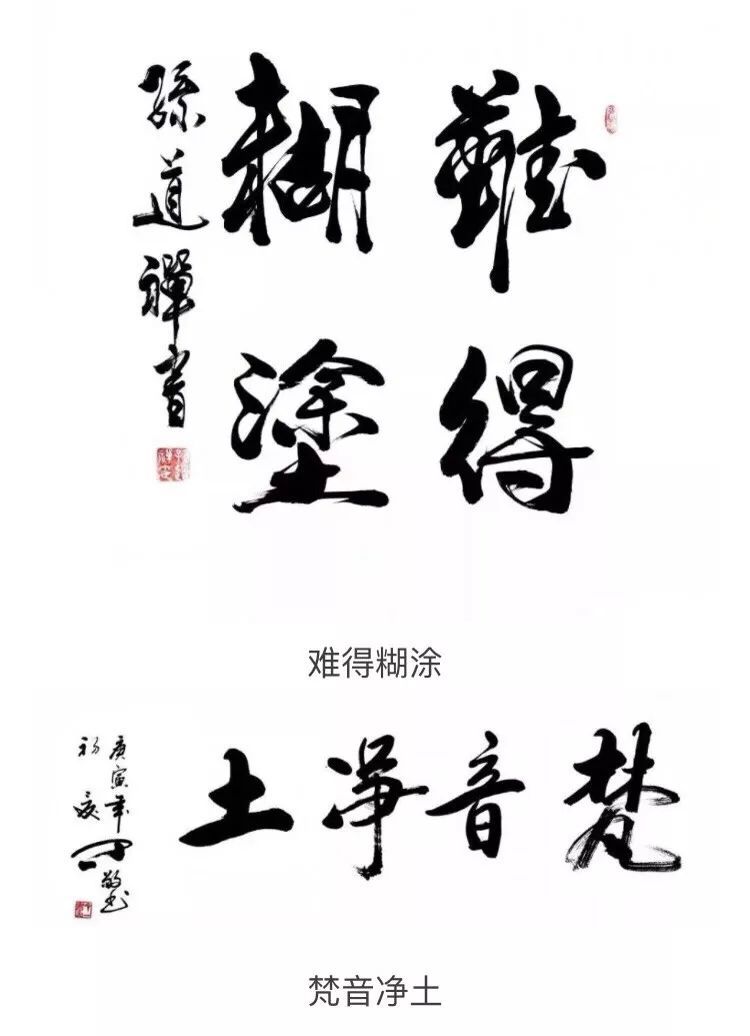 難得
糊塗
孫道禪書
难得糊涂
梵音净土
庚寅年
初夏
敬书
梵音净土